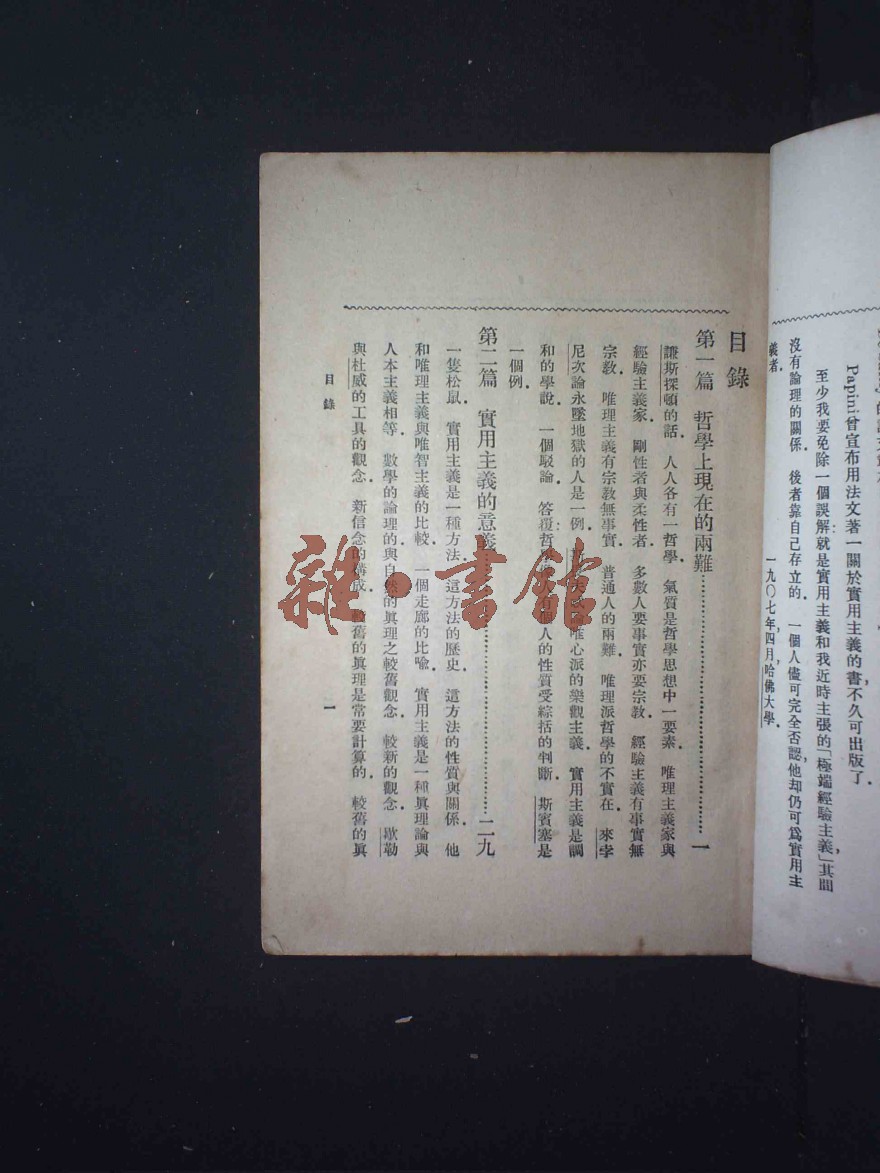 Papini曾宣布用法文著一關於實用主義的書不久可出版了．
至少我要免除一個誤解就是實用主義和我近時主張的「極端經驗主義」其間
沒有論理的關係．後者靠自己存立的．一個人儘可完全否認他却仍可爲實用主
義者．
一九〇七年四月，哈佛大學．
目錄
第一篇 哲學上現在的兩難……一
謙斯探頓的話．人人各有一哲學．氣質是哲學思想中一要素．唯理主義家與
經驗主義家．剛性者與柔性者．多數人要事實亦要宗教．經驗主義有事實無
宗教．唯理主義有宗教無事實．普通人的兩難．唯理派哲學的不實在．來字
尼次論永墜地獄的人是一例．唯心派的樂觀主義．實用主義是調
和的學說．一個駁論．答覆哲學人的性質受綜括的判斷．斯賓塞是
一個例．
第二篇 實用主義的意義……二九
一隻松鼠．實用主義是一種方法．這方法的歷史．這方法的性質與關係．他
和唯理主義與唯智主義的比較．一個走廊的比喩．實用主義是一種眞理論與
人本主義相等．數學的論理的與自然的眞理之較舊觀念．較新的觀念．歇勒
與杜威的工具的觀念．新信念的構成．較舊的眞理是常要計算的．較舊的眞
目錄
一
雜·書館